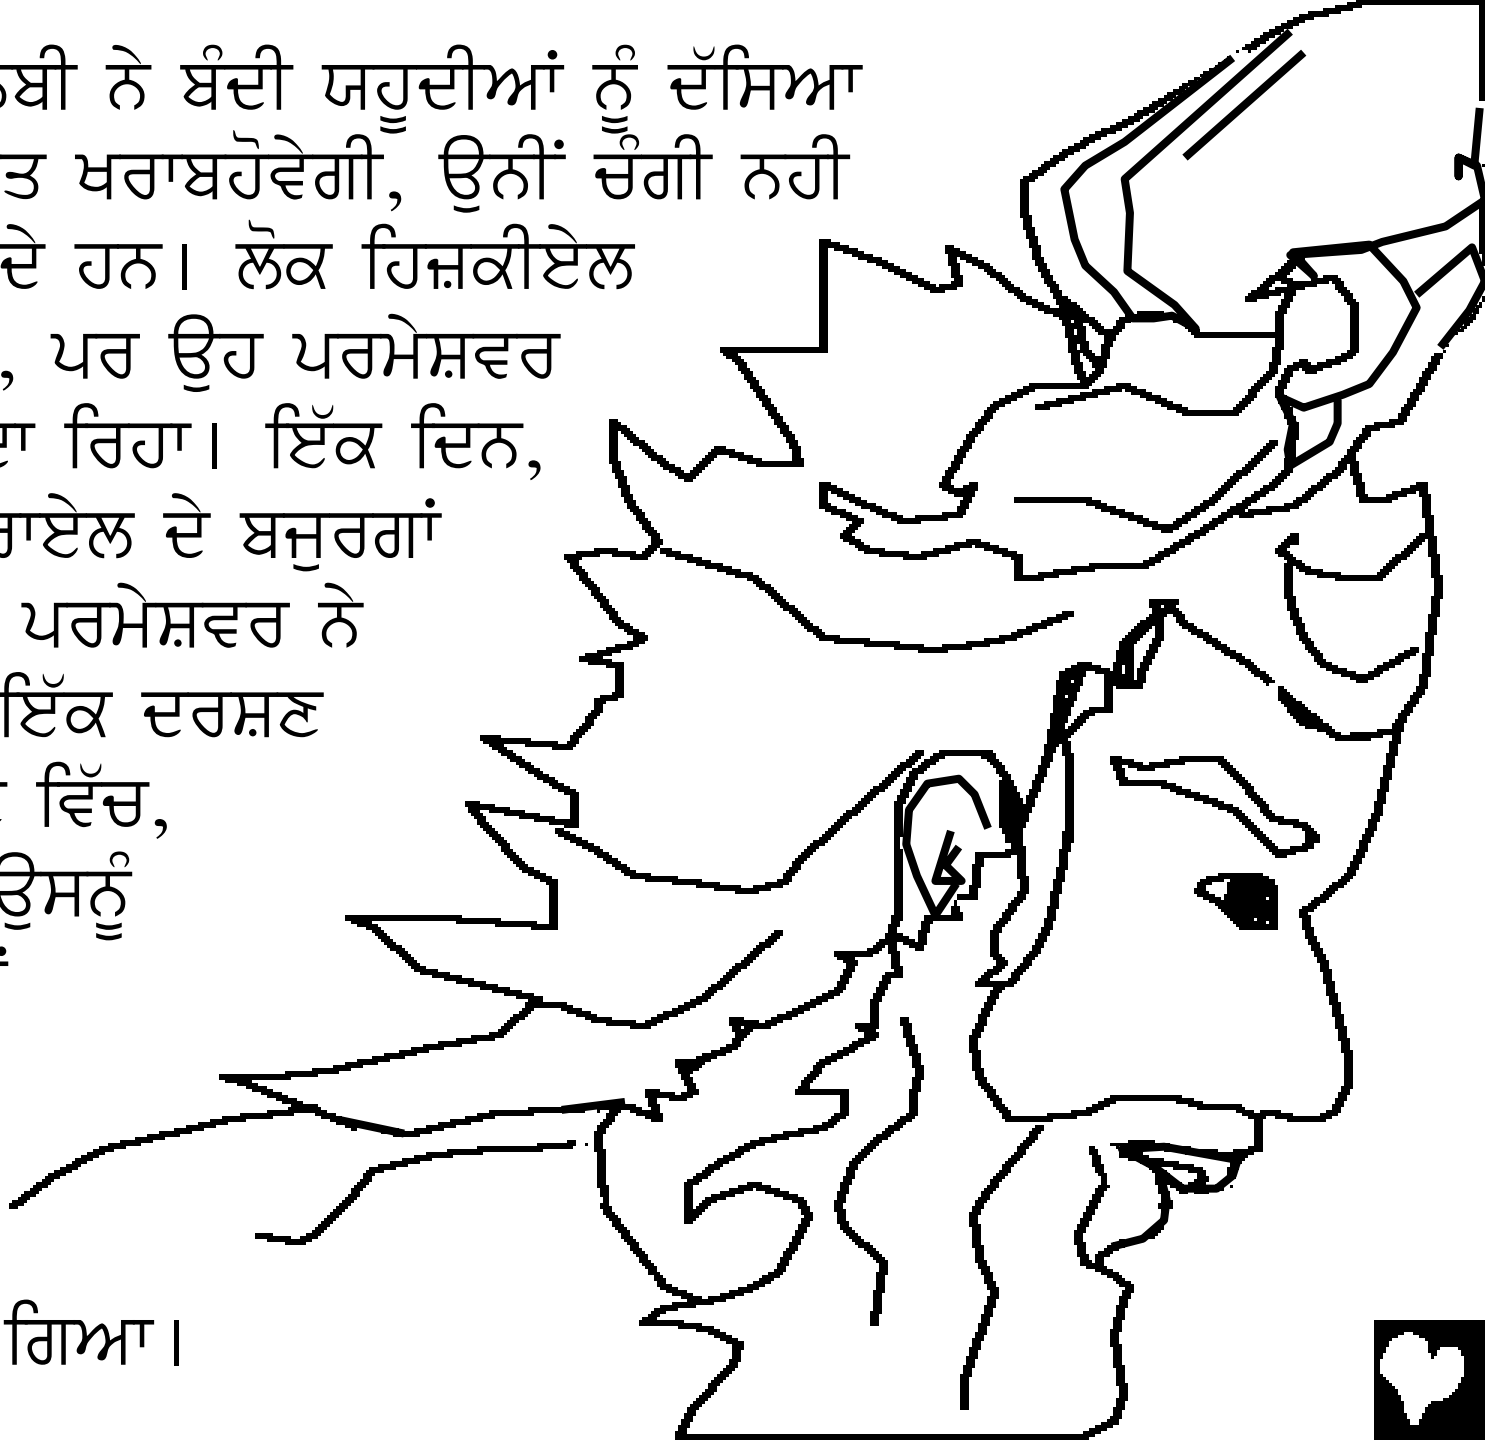 ਨਬੀ ਨੇ ਬੰਦੀ ਯਹੂਦੀਆਂ ਨੂੰ ਦੱਸਿਆ
ਤ ਖਰਾਬਹੋਵੇਗੀ, ਉਨੀਂ ਚੰਗੀ ਨਹੀ
ਦੇ ਹਨ। ਲੋਕ ਹਿਜ਼ਕੀਏਲ
, ਪਰ ਉਹ ਪਰਮੇਸ਼ਵਰ
ਰਿਹਾ। ਇੱਕ ਦਿਨ,
ਰਾਏਲ ਦੇ ਬਜੁਰਗਾਂ
ਪਰਮੇਸ਼ਵਰ ਨੇ
ਇੱਕ ਦਰਸ਼ਣ
ਵਿੱਚ,
ਉਸਨੂੰ
ਗਿਆ।